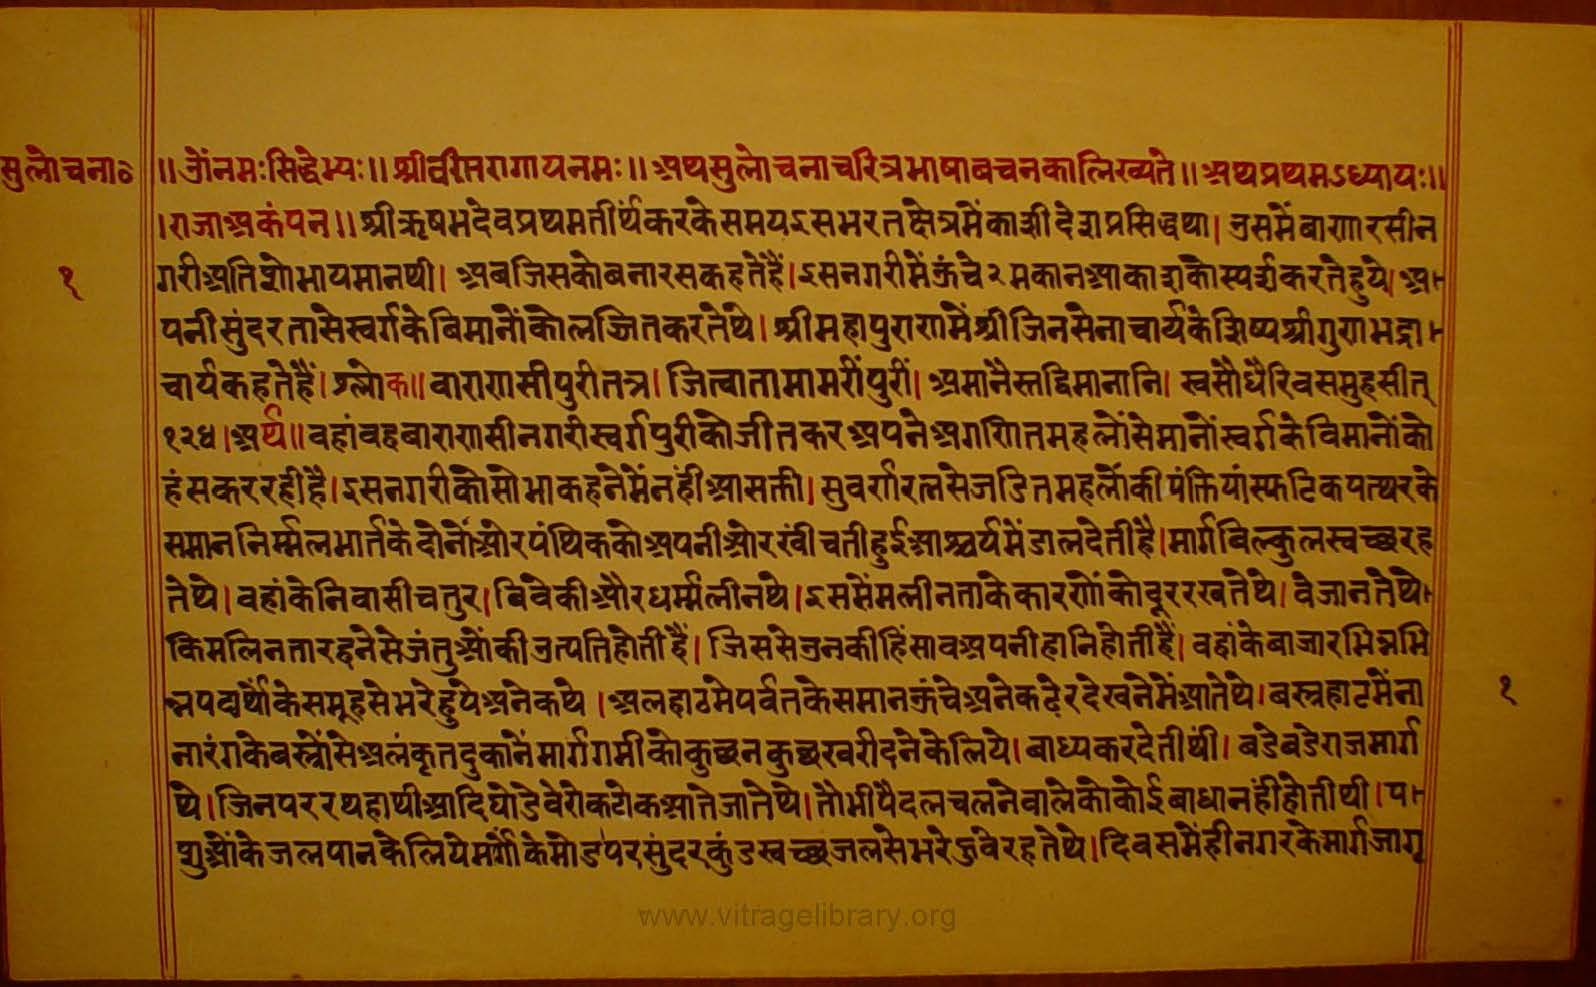 सुलोचना०
॥ ओंनमःसिद्धेभ्यः॥ श्रीवीतरागायनमः॥ अथसुलोचनाचरित्रभाषाबचनकालिख्यते॥ अथप्रथमऽध्यायः॥
।राजाअकंपन॥ श्रीऋषभदेवप्रथमतीर्थंकरकेसमयइसभरतक्षेत्रमेंकाशीदेशप्रसिद्धथा। उसमेंबाणारसीन
१
गरीअतिशोभायमानथी। अबजिसकोबनारसकहतेहैं। इसनगरीमेंऊंचे२मकानआकाशकोस्पर्शकरतेहुये। अ-
पनीसुंदरतासेस्वर्गकेबिमानोंकोलज्जितकरतेथे। श्रीमहापुराणमेंश्रीजिनसेनाचार्यकेशिष्यश्रीगुणभद्रा-
चार्यकहतेहैं। श्लोक॥ वाराणसीपुरीतत्र। जित्वातामामरींपुरीं। अमानैस्तद्विमानानि। स्वसौधैरिवसमुहसीत्
१२४। अर्थ॥ वहांवहबाराणसीनगरीस्वर्गपुरीकोजीतकरअपनेअगणितमहलोंसेमानोंस्वर्गकेविमानोंको
हंसकररहीहै। इसनगरीकोसोभाकहनेमेंनहींआसक्ती। सुवर्णरत्नसेजडितमहलोंकीपंक्तियांस्फटिकपत्थरके
समाननिर्म्मलमार्तकेदोनोंओरपंथिककोअपनीओरखींचतीहुईआश्चर्यमेंडालदेतीहै। मार्गबिल्कुलस्वच्छरह
तेथे। वहांकेनिवासीचतुर। बिवेकीऔरधर्म्मलीनथे। इससेंमलीनताकेकारणोंकोदूररखतेथे। वेजानतेथे-
किमलिनतारहनेसेजंतुओंकीउत्पतिहोतीहैं। जिससेउनकीहिंसावअपनीहानिहोतीहैं। वहांकेबाजारभिन्नभि
न्नपदार्थोंकेसमूहसेभरेहुयेअनेकथे। अलहाटमेपर्वतकेसमानऊंचेअनेकढेरदेखनेमेंआतेथे। बस्त्रहाटमेंना
१
नारंगकेबस्त्रोंसेअलंकृतदुकानेंमार्गगमीकोकुछनकुछखरीदनेकेलिये। बाध्यकरदेतीथीं। बडेबडेराजमार्ग
थे। जिनपररथहाथीआदिघोडेवेरोकटोकआतेजातेथे। तौभीपैदलचलनेवालेकोकोईबाधानहींहोतीथी। प-
शुओंकेजलपानकेलियेमार्गोंकेमोडपरसुंदरकुंडस्वच्छजलसेभरेहुवेरहतेथे। दिवसमेंहीनगरकेमार्गजागृ
www.vitragelibrary.org